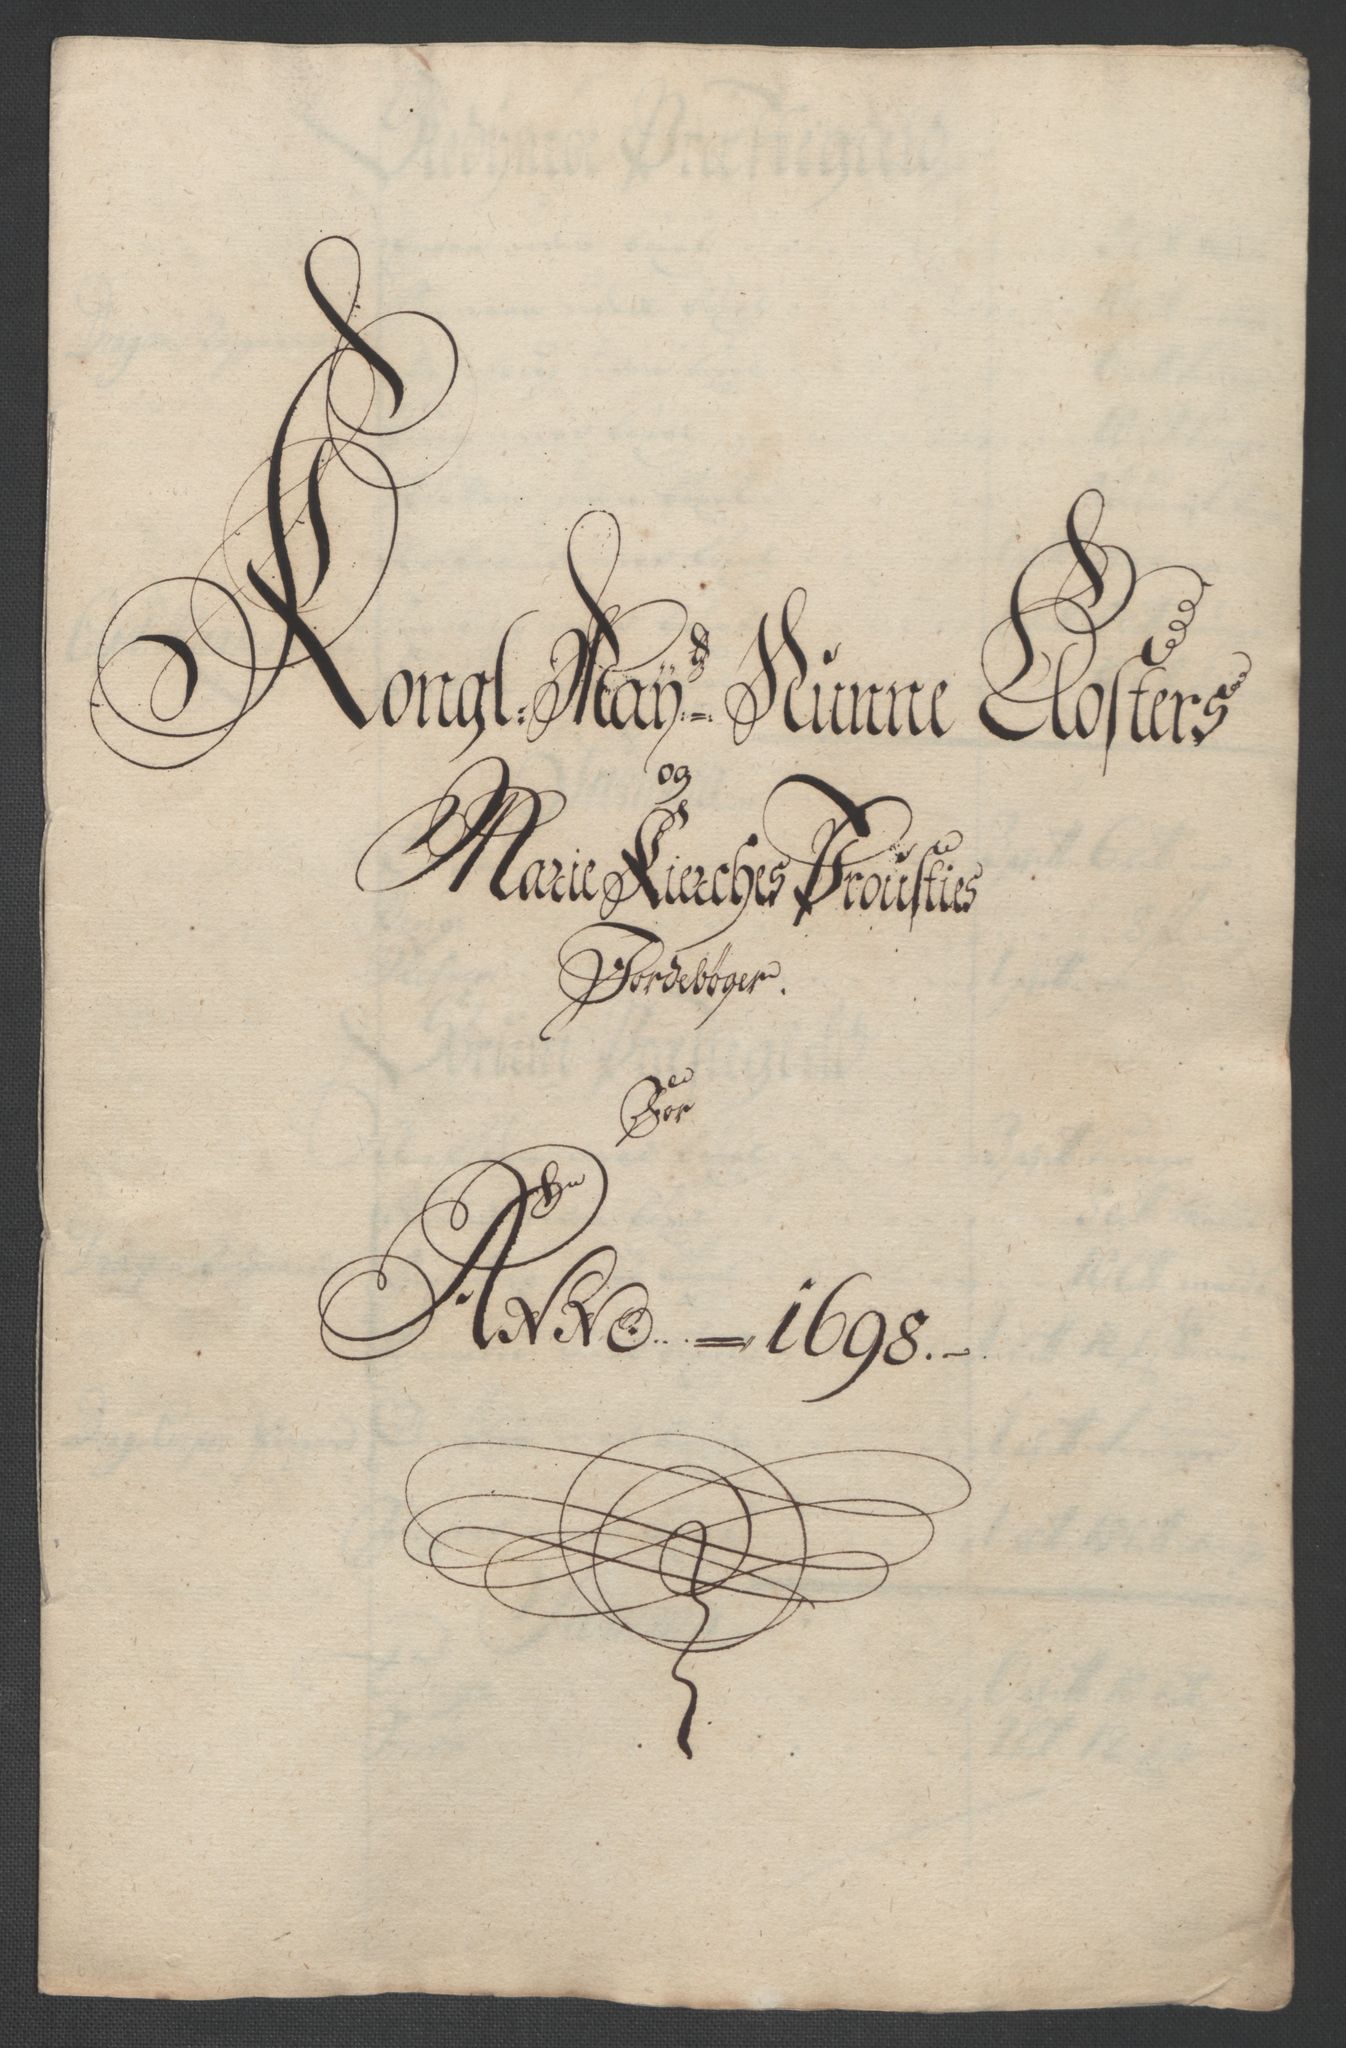 Kongl: May:ts Nunne Closters
og
Marie Kierches Prousties
Jordebøger.
For
Anno 1698.